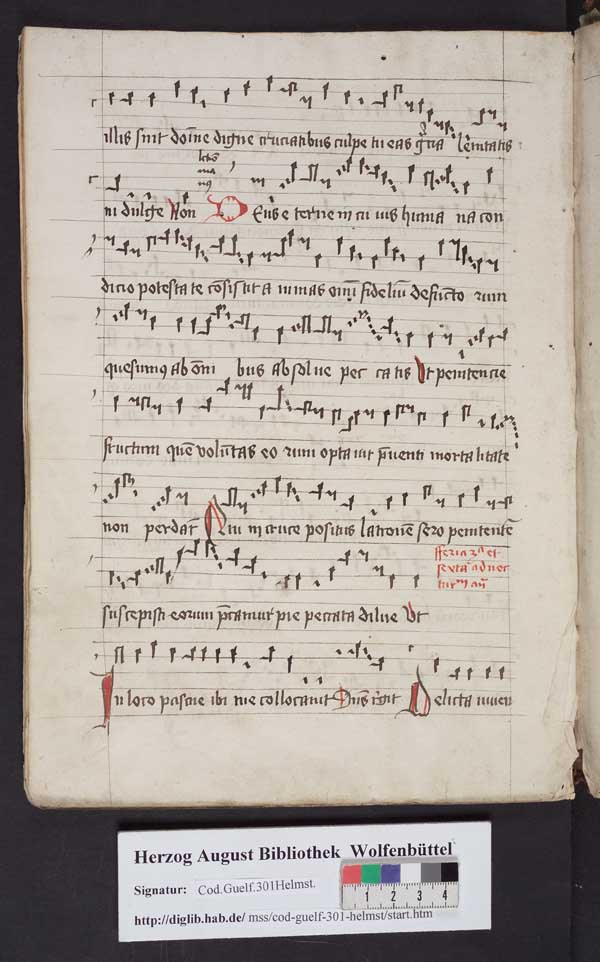 illis sint dom̄ne digne cruciatibus culpe tu eas gr̄cia lenitatis
ni dulge Non Deus eterne in cuius humana con
dicio potestate cōsistit animas om̄i fideliū defuncto rum
quesumus ab om̄i bus absolue peccatis Ut penitencie
fructum quē voluntas eorum optauit p̄uenti mortalitate
non perdant Qui in cruce positus latronē sero penitentē
fferia 2ª et
sexta ad noc
suscepisti eorum p̄camur pie peccata dilue Ut
In loco pascue ibi me collocauit Dn̄s regit Delicta iuuen
Herzog August Bibliothek Wolfenbüttel
Signatur: Cod.Guelf.301Helmst.
http://diglib.hab.de/ mss/cod-guelf-301-helmst/start.htm
1 2 3 4